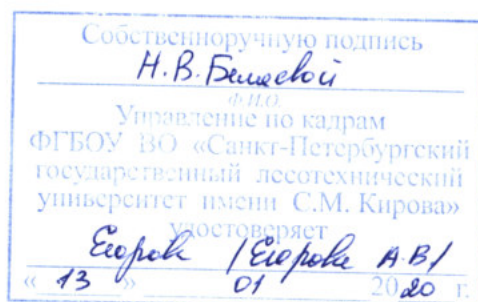 Собственноручную подпись
Н.В. Беляевой
Ф.И.О.
Управление по кадрам
ФГБОУ ВО «Санкт-Петербургский
государственный лесотехнический
университет имени С.М. Кирова»
удостоверяет
Егорова /Егорова А.В/
« 13 » 01 2020 г.